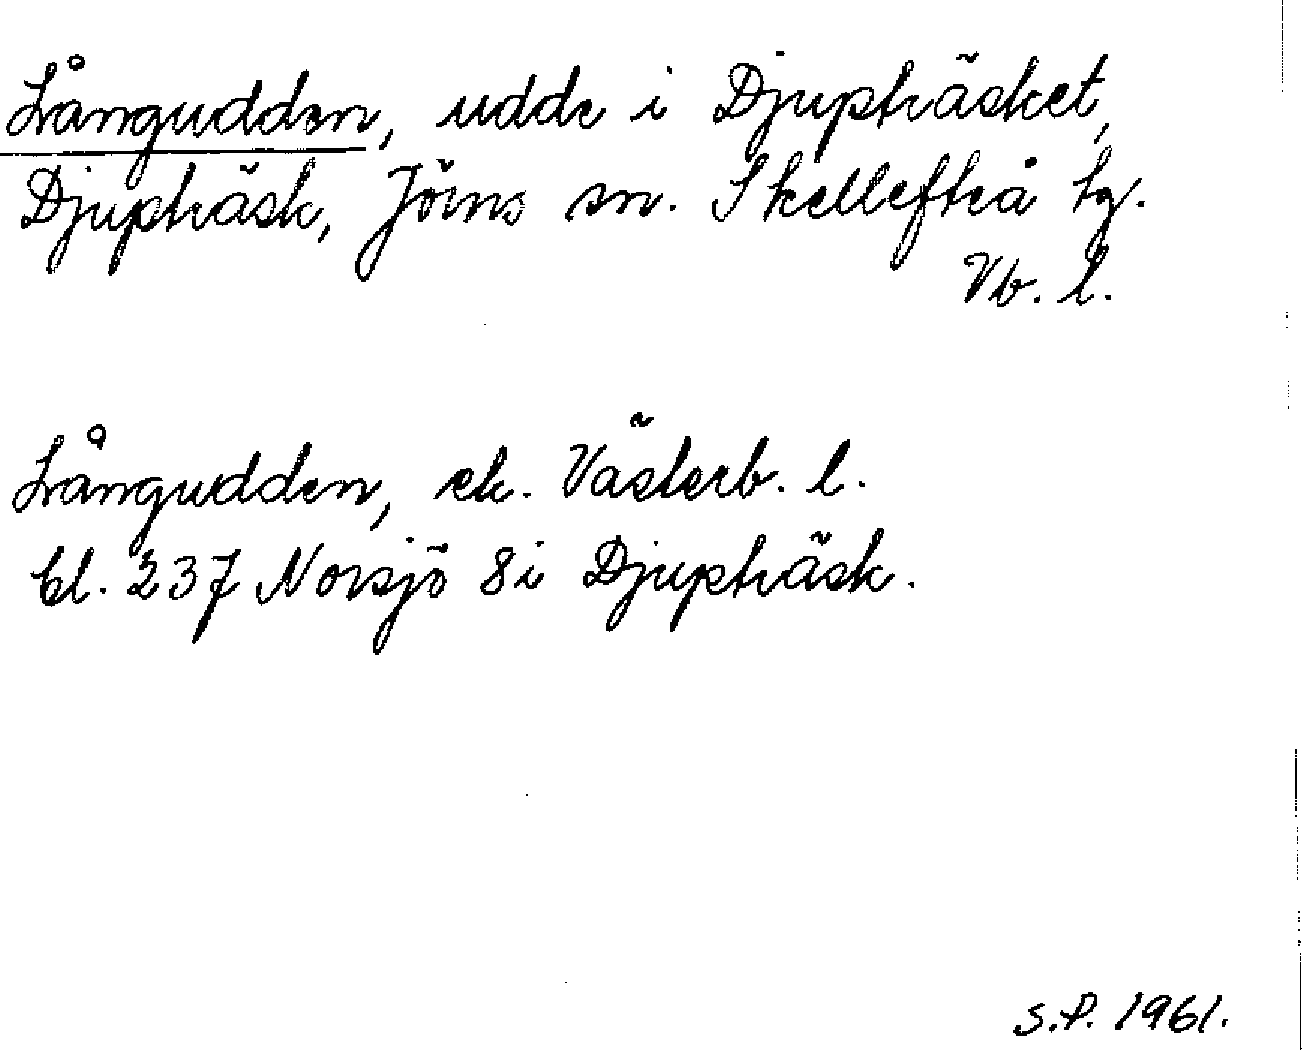 Långudden, udde i Djupträsket,
Djupträsk, Jörns sn. Skellefteå tg.
Vb. l.
Långudden, ek. Västerb. l.
bl. 237 Norsjö 8i Djupträsk.
S.P. 1961.